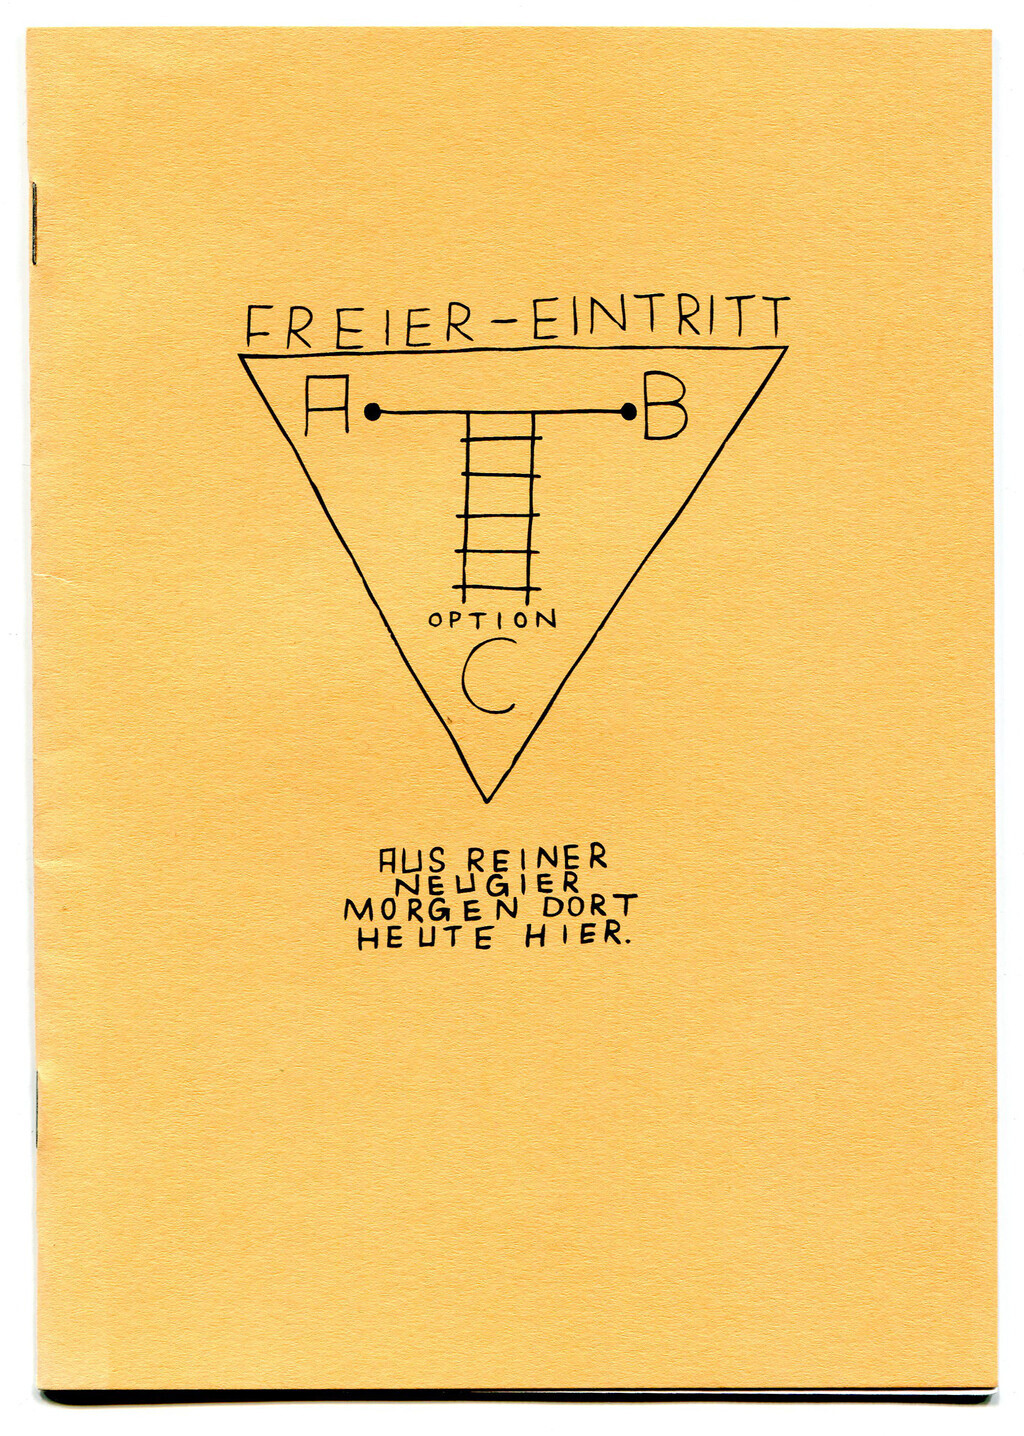 FREIER-EINTRITT
A B
OPTION
C
AUS REINER
NEUGIER
MORGEN DORT
HEUTE HIER.